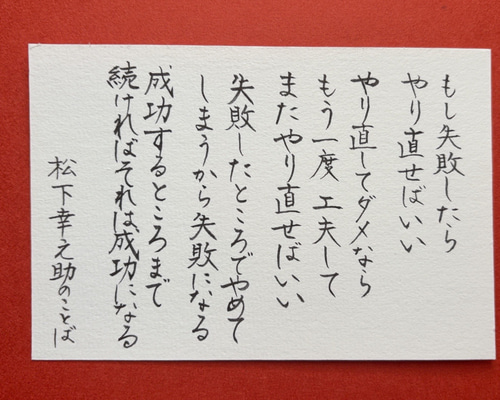 もし失敗したら
やり直せばいい
やり直してダメなら
もう一度 工夫して
またやり直せばいい
失敗したところでやめて
しまうから失敗になる
成功するところまで
続ければそれは成功になる
松下幸之助のことば